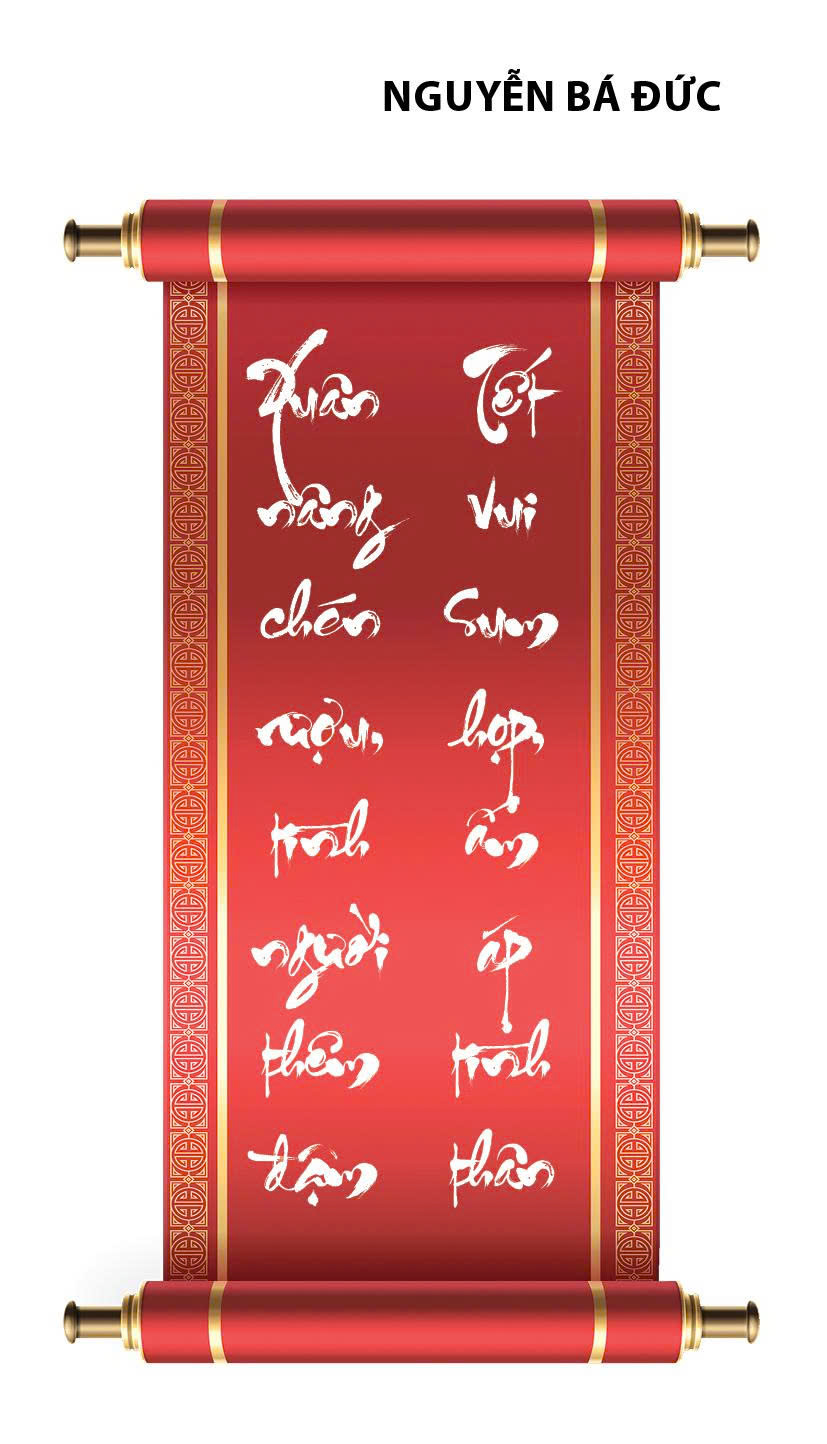 NGUYỄN BÁ ĐỨC
Xuân
nâng
chén
rượu,
tình
người
thêm
đậm
Tết
Vui
Sum
họp,
ấm
áp
tình
thân